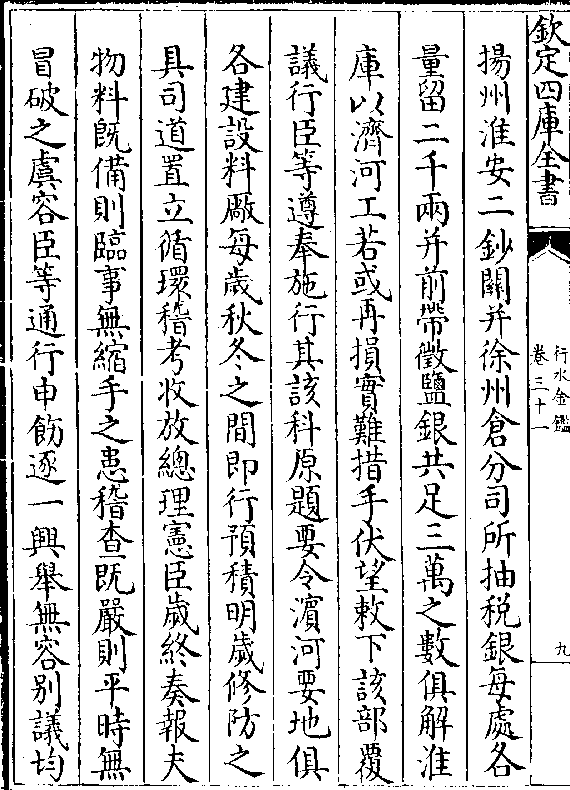 欽定四庫全書
行水金鑑
卷三十一
九
揚州淮安二鈔關并徐州倉分司所抽税銀每處各
量留二千兩并前帶徵鹽銀共足三萬之數俱解淮
庫以濟河工若或再損實難措手伏望敕下該部覆
議行臣等遵奉施行其該科原題要令濱河要地俱
各建設料厰每歳秋冬之間即行預積明歳修防之
具司道置立循環稽考收放總理憲臣歳終奏報夫
物料既備則臨事無縮手之患稽查既嚴則平時無
冒破之虞容臣等通行申飭逐一興舉無容别議均